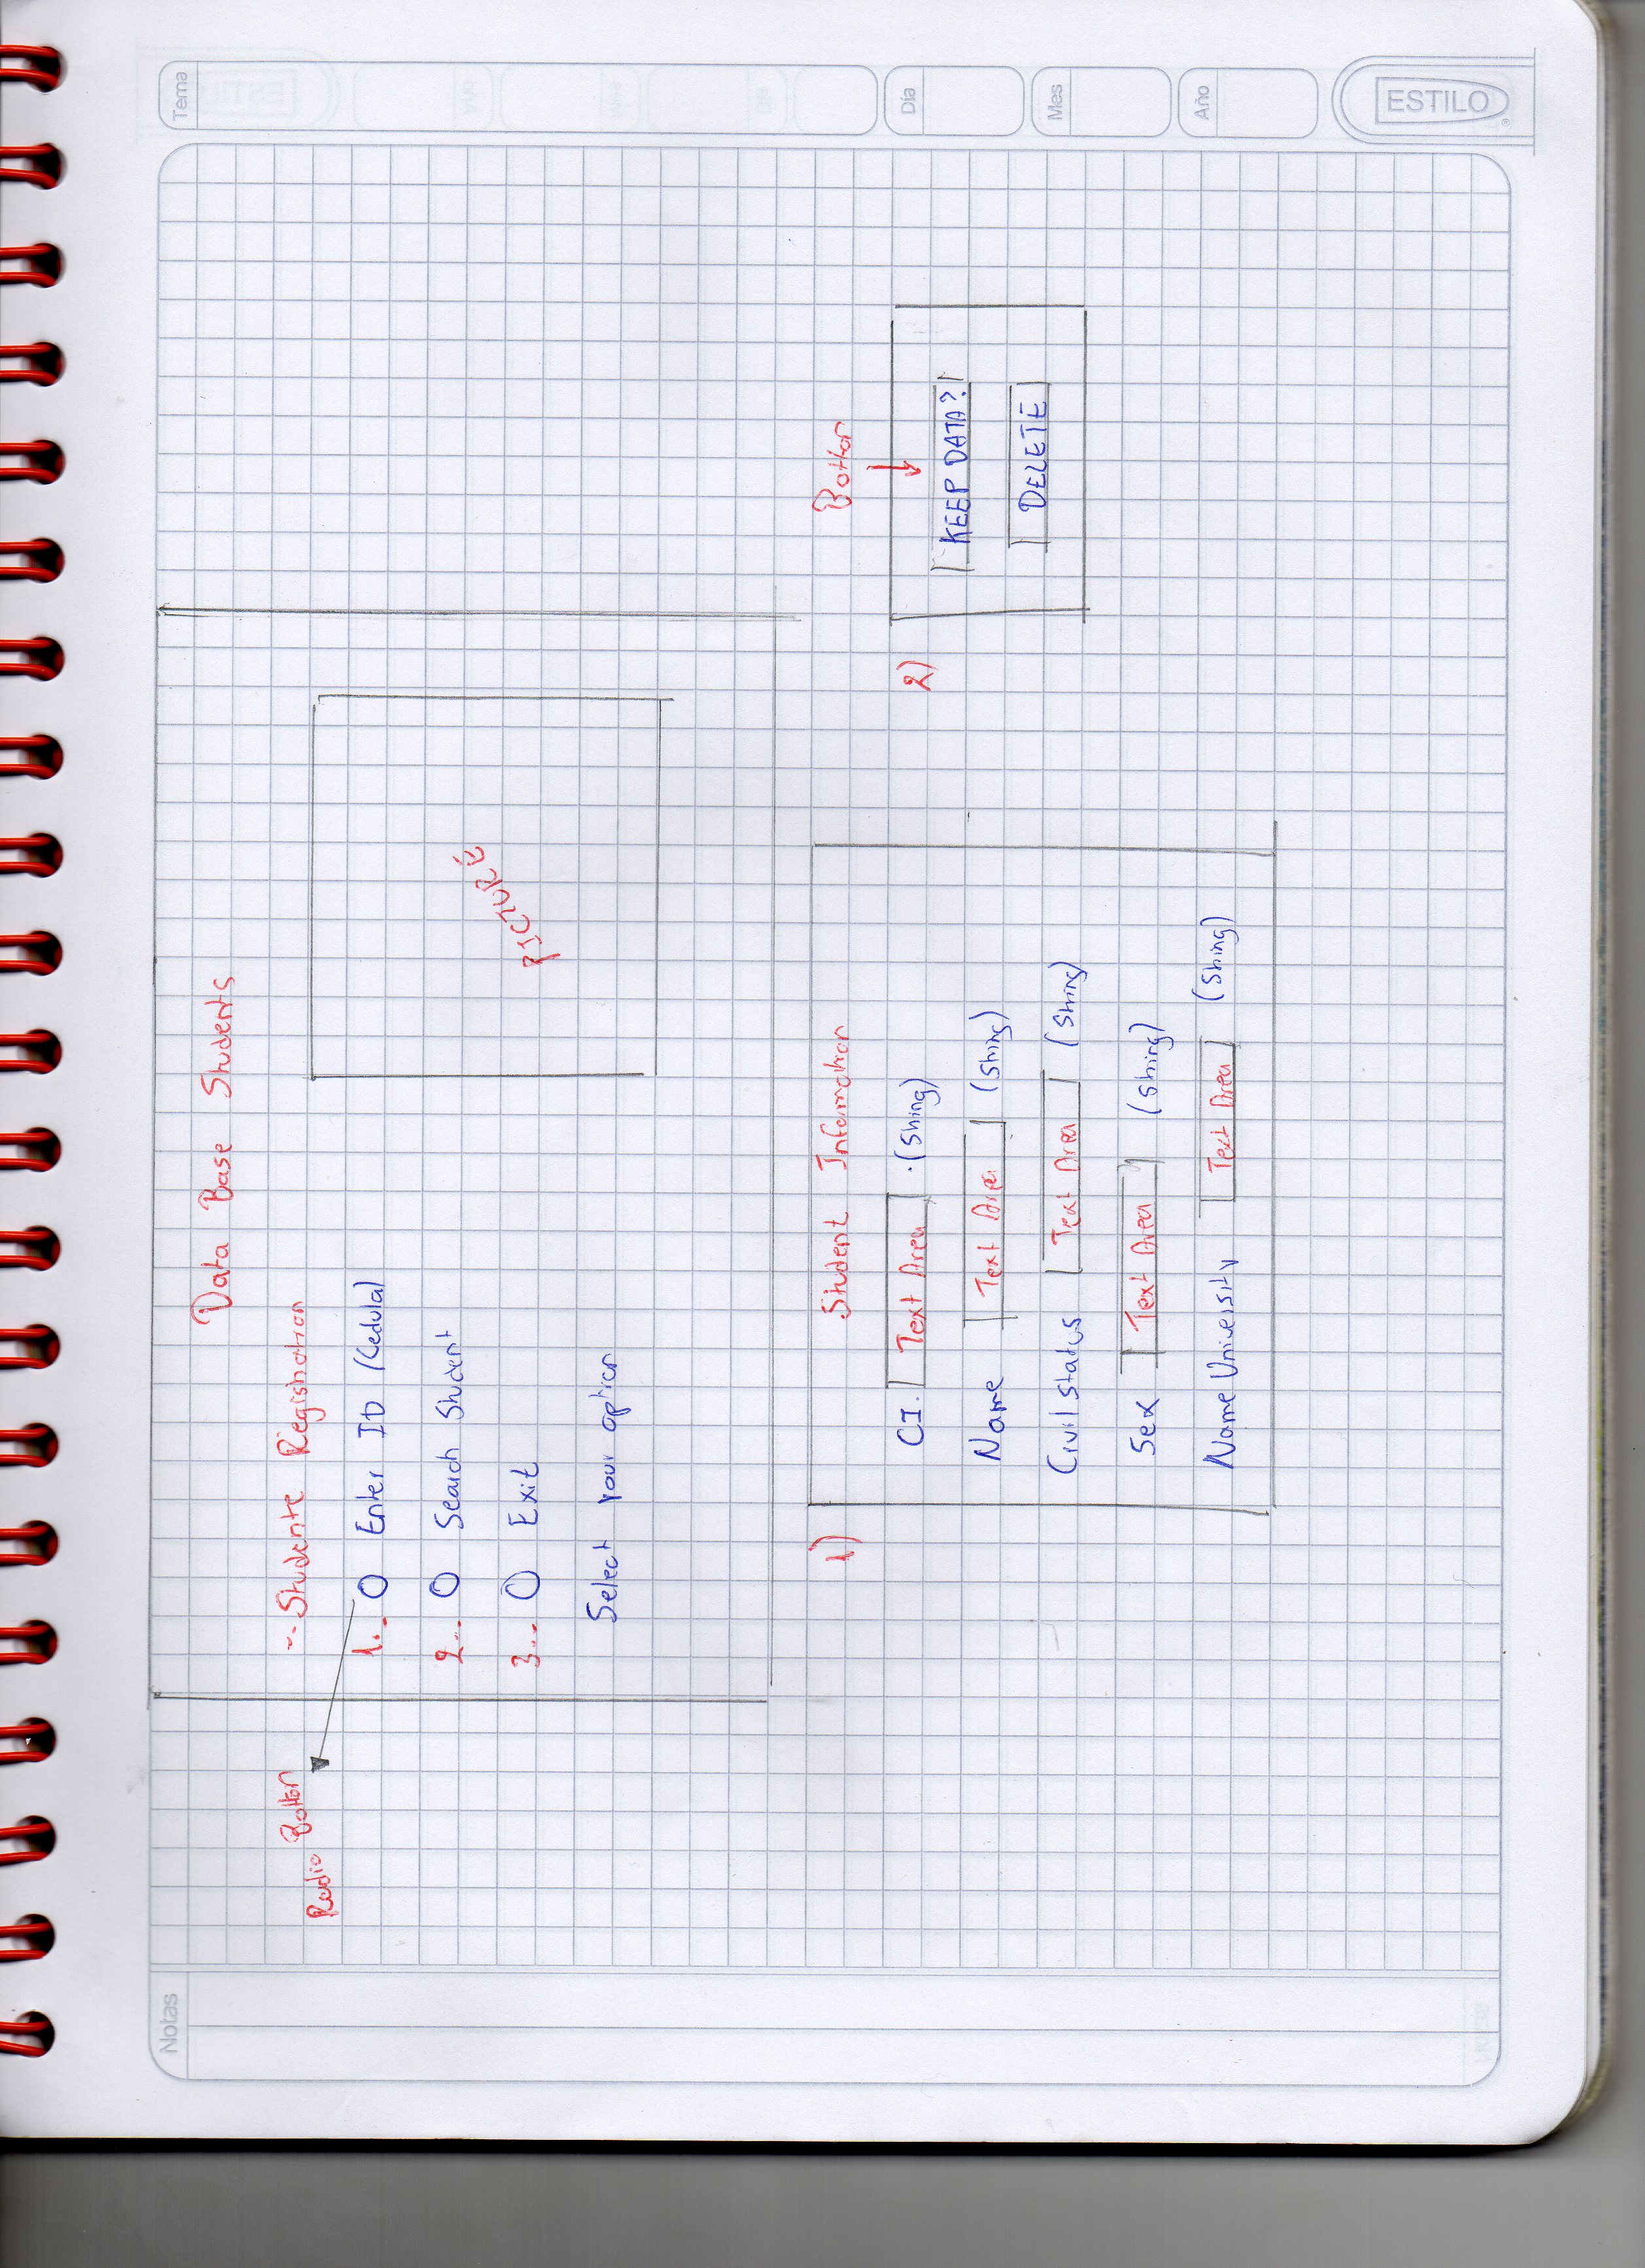 Notas
Tema
Data Base Students
Radio Botton
-- Studente Registration
1.- Enter ID (Cedula)
2.- Search Student
3.- Exit
Select your option
PICTURE
1) Student Information
CI. Text Area (String)
Name Text Area (String)
Civil Status Text Area (String)
Sex Text Area (String)
Name University Text Area (String)
Botton
2) KEEP DATA?
DELETE
Día
Mes
Año
ESTILO